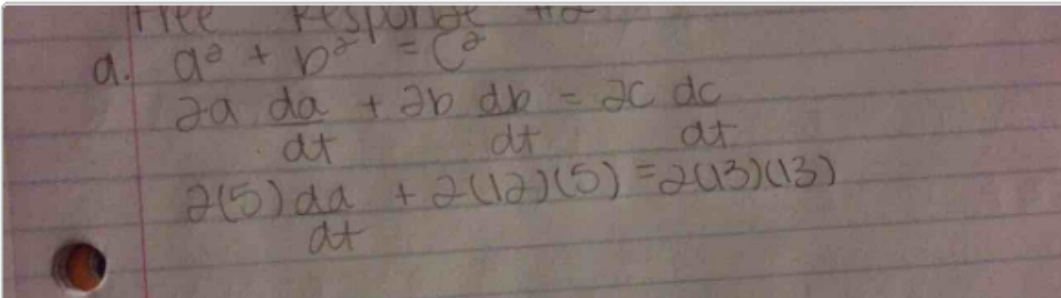 Free Response #2
a. a² + b² = c²
2a da/dt + 2b db/dt = 2c dc/dt
2(5) da/dt + 2(12)(5) = 2(13)(13)